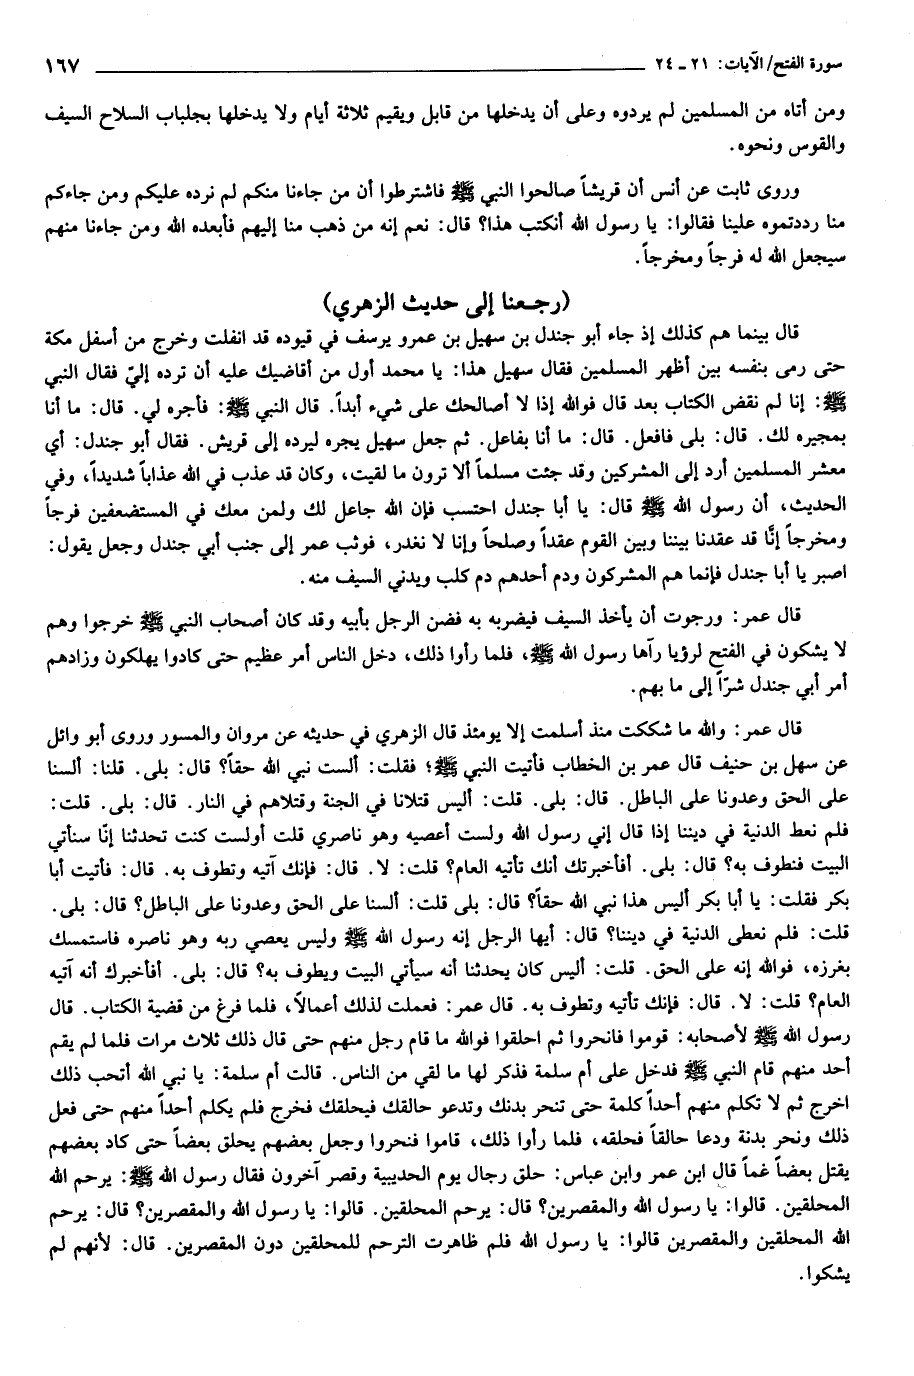 سورة الفتح/ الآيات: ٢١ ـ ٢٤ ١٦٧
ومن أتاه من المسلمين لم يردوه وعلى أن يدخلها من قابل ويقيم ثلاثة أيام ولا يدخلها بجلباب السلاح السيف
والقوس ونحوه.
وروى ثابت عن أنس أن قريشاً صالحوا النبي ﷺ فاشترطوا أن من جاءنا منكم لم نرده عليكم ومن جاءكم
منا رددتموه علينا فقالوا: يا رسول الله أنكتب هذا؟ قال: نعم إنه من ذهب منا إليهم فأبعده الله ومن جاءنا منهم
سيجعل الله له فرجاً ومخرجاً.
(رجعنا إلى حديث الزهري)
قال بينما هم كذلك إذ جاء أبو جندل بن سهيل بن عمرو يرسف في قيوده قد انفلت وخرج من أسفل مكة
حتى رمى بنفسه بين أظهر المسلمين فقال سهيل هذا: يا محمد أول من أقاضيك عليه أن ترده إليّ فقال النبي
ﷺ: إنا لم نقض الكتاب بعد قال فوالله إذا لا أصالحك على شيء أبداً. قال النبي ﷺ: فأجره لي. قال: ما أنا
بمجيره لك. قال: بلى فافعل. قال: ما أنا بفاعل. ثم جعل سهيل يجره ليرده إلى قريش. فقال أبو جندل: أي
معشر المسلمين أرد إلى المشركين وقد جئت مسلماً ألا ترون ما لقيت، وكان قد عذب في الله عذاباً شديداً، وفي
الحديث، أن رسول الله ﷺ قال: يا أبا جندل احتسب فإن الله جاعل لك ولمن معك في المستضعفين فرجاً
ومخرجاً إنَّا قد عقدنا بيننا وبين القوم عقداً وصلحاً وإنا لا نغدر، فوثب عمر إلى جنب أبي جندل وجعل يقول:
اصبر يا أبا جندل فإنما هم المشركون ودم أحدهم دم كلب ويدني السيف منه.
قال عمر: ورجوت أن يأخذ السيف فيضربه به فضن الرجل بأبيه وقد كان أصحاب النبي ﷺ خرجوا وهم
لا يشكون في الفتح لرؤيا رآها رسول الله ﷺ، فلما رأوا ذلك، دخل الناس أمر عظيم حتى كادوا يهلكون وزادهم
أمر أبي جندل شرّاً إلى ما بهم.
قال عمر: والله ما شككت منذ أسلمت إلا يومئذ قال الزهري في حديثه عن مروان والمسور وروى أبو وائل
عن سهل بن حنيف قال عمر بن الخطاب فأتيت النبي ﷺ؛ فقلت: ألست نبي الله حقاً؟ قال: بلى. قلنا: ألسنا
على الحق وعدونا على الباطل. قال: بلى. قلت: أليس قتلانا في الجنة وقتلاهم في النار. قال: بلى. قلت:
فلم نعط الدنية في ديننا إذا قال إني رسول الله ولست أعصيه وهو ناصري قلت أولست كنت تحدثنا إنّا سنأتي
البيت فنطوف به؟ قال: بلى. أفأخبرتك أنك تأتيه العام؟ قلت: لا. قال: فإنك آتيه وتطوف به. قال: فأتيت أبا
بكر فقلت: يا أبا بكر أليس هذا نبي الله حقاً؟ قال: بلى قلت: ألسنا على الحق وعدونا على الباطل؟ قال: بلى.
قلت: فلم نعطى الدنية في ديننا؟ قال: أيها الرجل إنه رسول الله ﷺ وليس يعصي ربه وهو ناصره فاستمسك
بغرزه، فوالله إنه على الحق. قلت: أليس كان يحدثنا أنه سيأتي البيت ويطوف به؟ قال: بلى. أفأخبرك أنه آتيه
العام؟ قلت: لا. قال: فإنك تأتيه وتطوف به. قال عمر: فعملت لذلك أعمالاً، فلما فرغ من قضية الكتاب. قال
رسول الله ﷺ لأصحابه: قوموا فانحروا ثم احلقوا فوالله ما قام رجل منهم حتى قال ذلك ثلاث مرات فلما لم يقم
أحد منهم قام النبي ﷺ فدخل على أم سلمة فذكر لها ما لقي من الناس. قالت أم سلمة: يا نبي الله أتحب ذلك
اخرج ثم لا تكلم منهم أحداً كلمة حتى تنحر بدنك وتدعو حالقك فيحلقك فخرج فلم يكلم أحداً منهم حتى فعل
ذلك ونحر بدنة ودعا حالقاً فحلقه، فلما رأوا ذلك، قاموا فنحروا وجعل بعضهم يحلق بعضاً حتى كاد بعضهم
يقتل بعضاً غماً قال ابن عمر وابن عباس: حلق رجال يوم الحديبية وقصر آخرون فقال رسول الله ﷺ: يرحم الله
المحلقين. قالوا: يا رسول الله والمقصرين؟ قال: يرحم المحلقين. قالوا: يا رسول الله والمقصرين؟ قال: يرحم
الله المحلقين والمقصرين قالوا: يا رسول الله فلم ظاهرت الترحم للمحلقين دون المقصرين. قال: لأنهم لم
يشكوا.